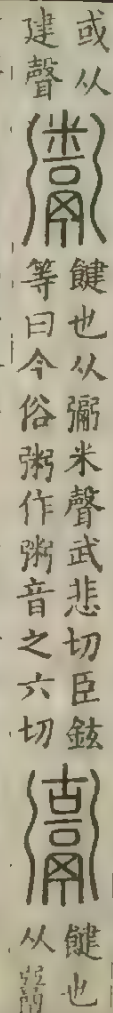 或从
建聲
鬻
䭈也从䰜米聲武悲切臣鉉
等曰今俗粥作粥音之六切
䭈也
从